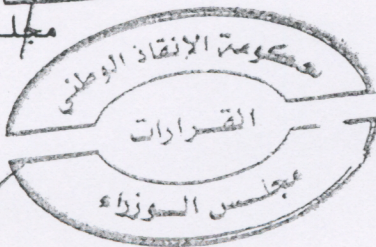 مجلـ
حكومة الإنقاذ الوطني
القـرارات
مجلـس الـوزراء